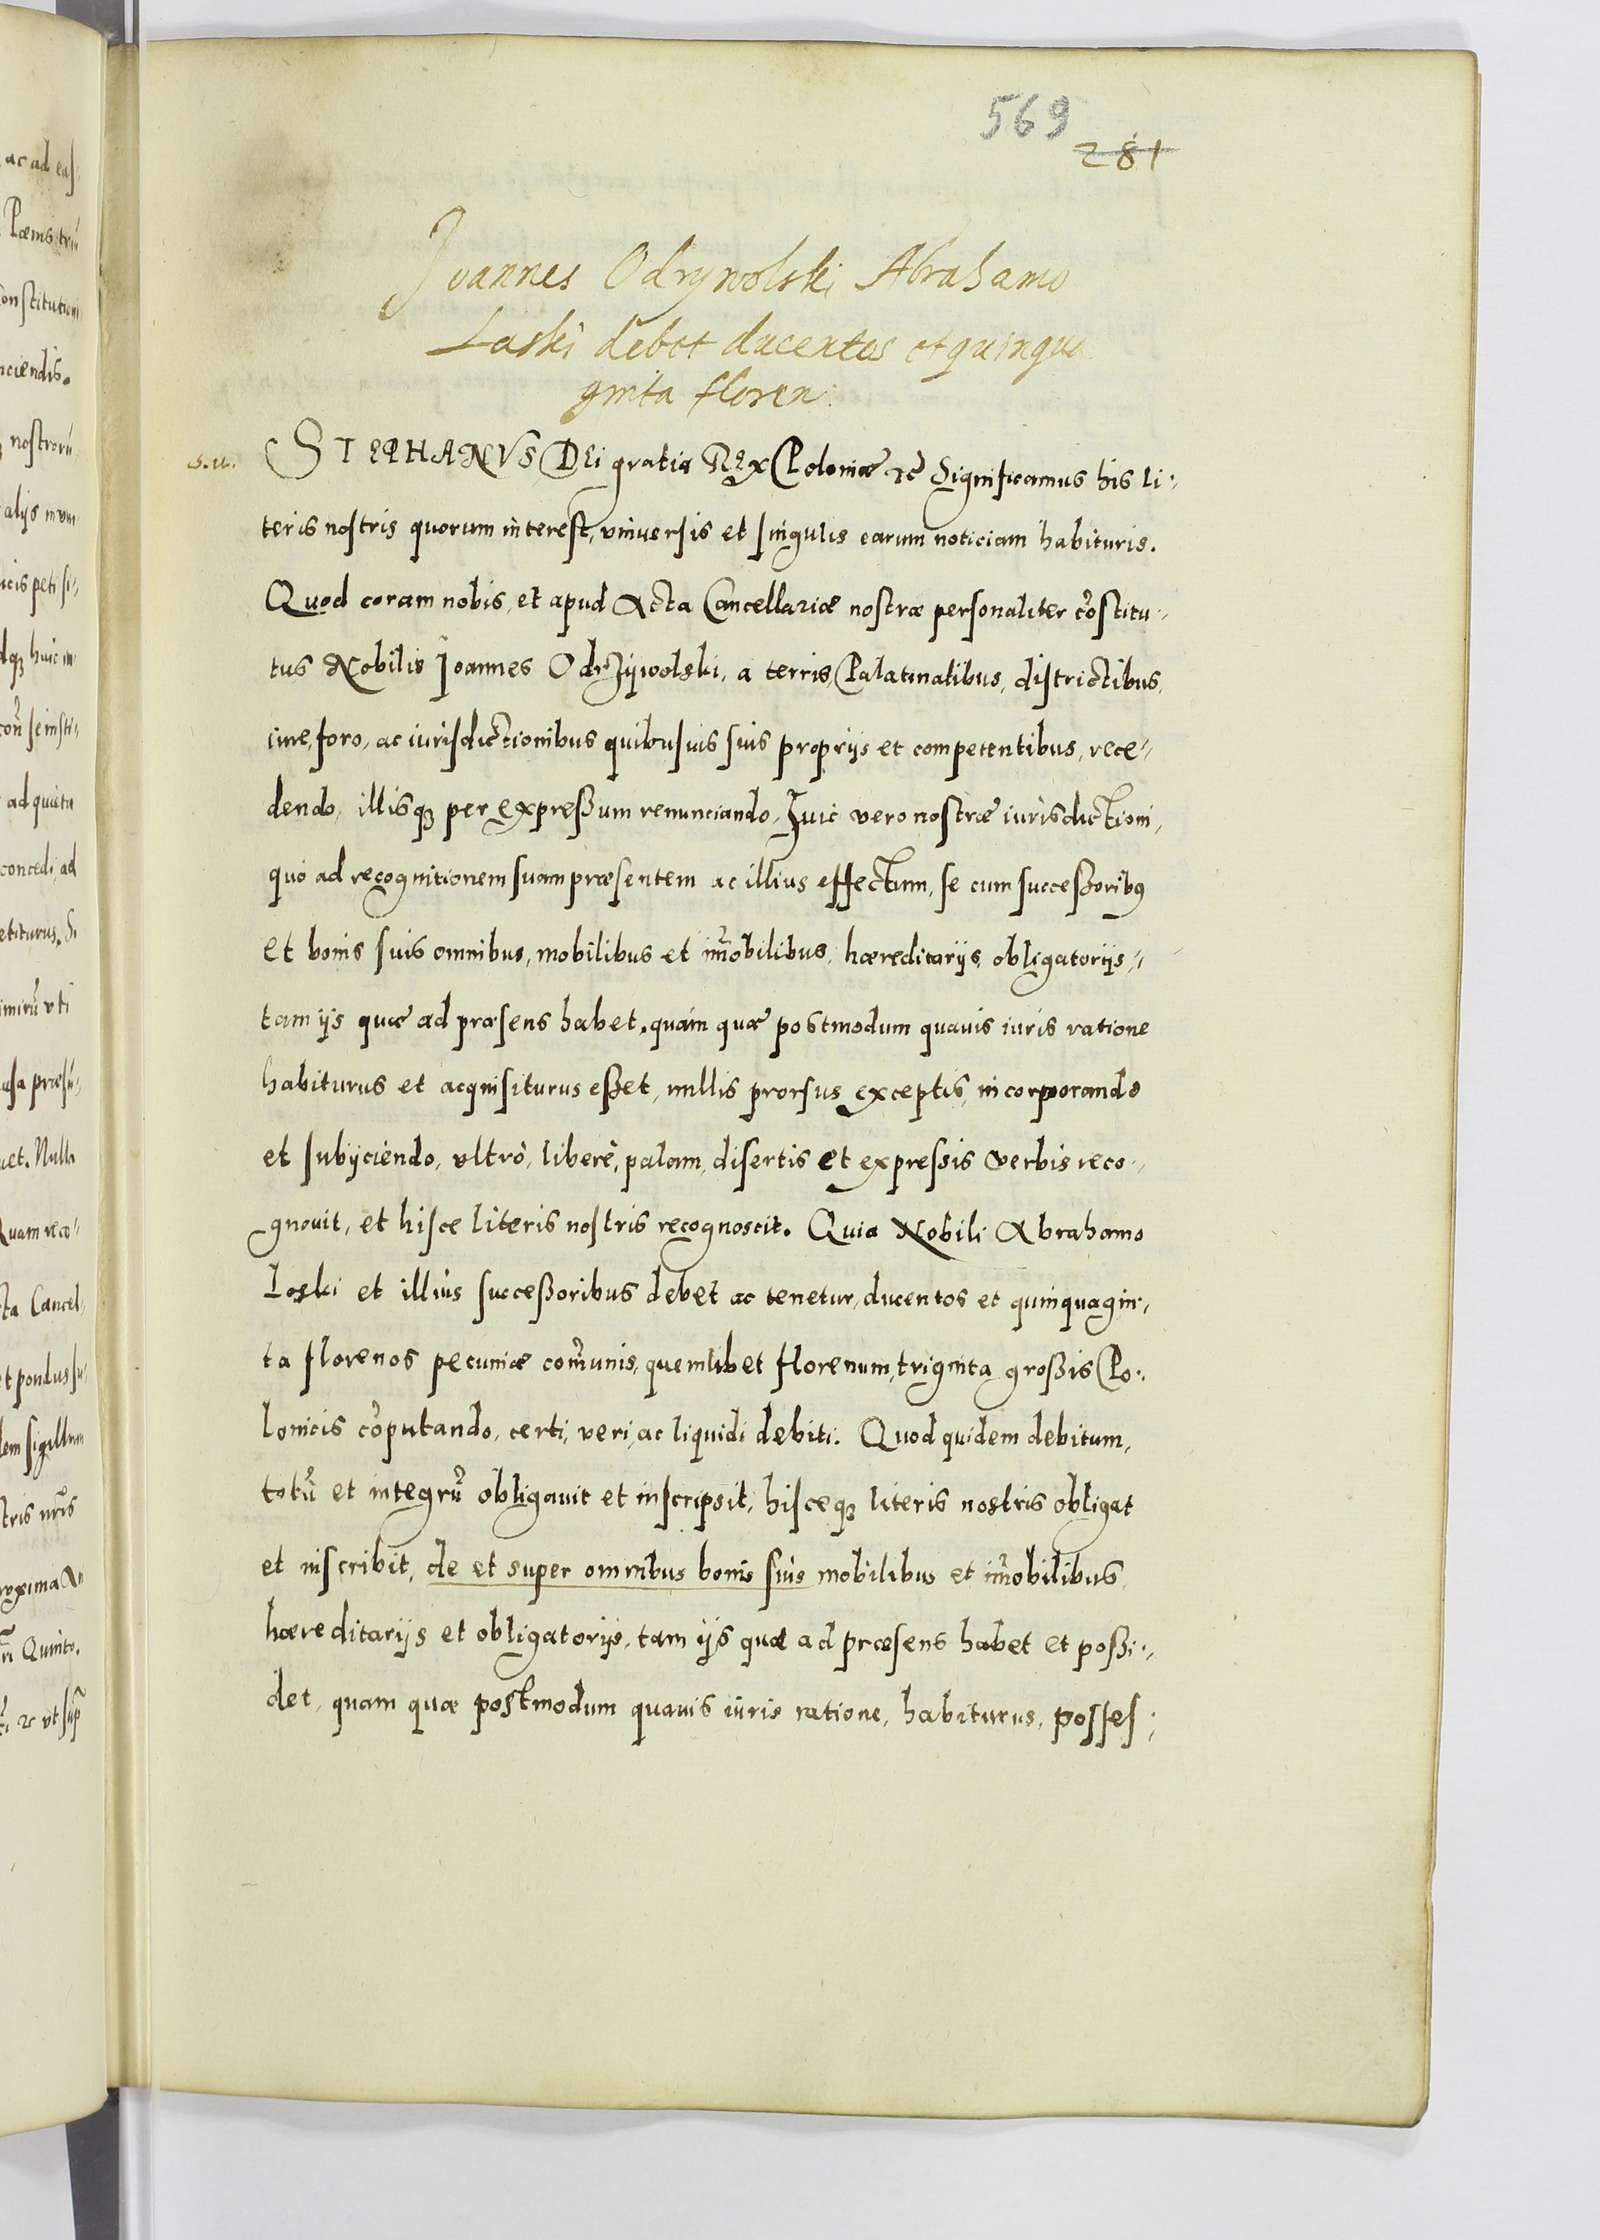 569
281
Joannes Odrywolski Abrahamo
Laski debet ducentos et quinqua
ginta floren:
STEPHANVS DEi gratia REx Poloniæ &c̃ Significamus his li-
teris nostris quorum interest, vniuersis et singulis earum noticiam habituris.
Quod coram nobis, et apud Acta Cancellariæ nostræ personaliter cõstitu-
tus Nobilis Joannes Odrzÿwolski, a terris, Palatinatibus, districtibus,
iure, foro, ac iurisdictionibus quibusuis suis proprijs et competentibus, rece-
dendo, illisq3 per expressum renunciando, Huic vero nostræ iurisdictioni,
quò ad recognitionem suam præsentem ac illius effectum, se cum successorib9
et bonis suis omnibus, mobilibus et im̃obilibus, hæreditarijs, obligatorijs,
tam ijs quæ ad præsens habet, quàm quæ postmodum quauis iuris ratione
habiturus et acquisiturus esset, nullis prorsus exceptis, incorporando
et subijciendo, vltrò, liberè, palam, disertis et expressis verbis reco-
gnouit, et hisce literis nostris recognoscit. Quia Nobili Abrahamo
Loski et illius successoribus debet ac tenetur, ducentos et quinquagin-
ta florenos pecuniæ com̃unis, quemlibet florenum, triginta grossis Po-
lonicis cõputando, certi, veri, ac liquidi debiti. Quod quidem debitum,
totũ et integrũ obligauit et inscripsit, hisceq3 literis nostris obligat
et inscribit, de et super omnibus bonis suis mobilibus et im̃obilibus,
hæreditarijs et obligatorijs, tam ijs quæ ad præsens habet et possi-
det, quam quæ postmodum quauis iuris ratione, habiturus, posses-